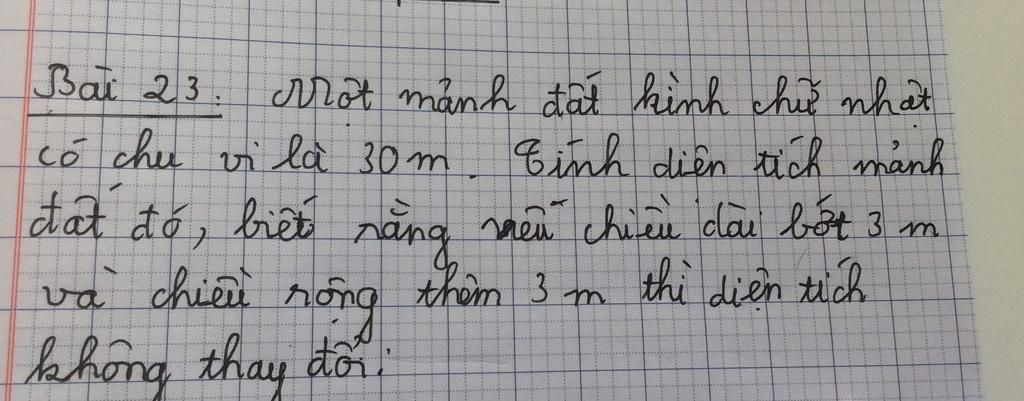 Bài 23: Một mảnh đất hình chữ nhật
có chu vi là 30 m. Tính diện tích mảnh
đất đó, biết rằng nếu chiều dài bớt 3 m
và chiều rộng thêm 3 m thì diện tích
không thay đổi.